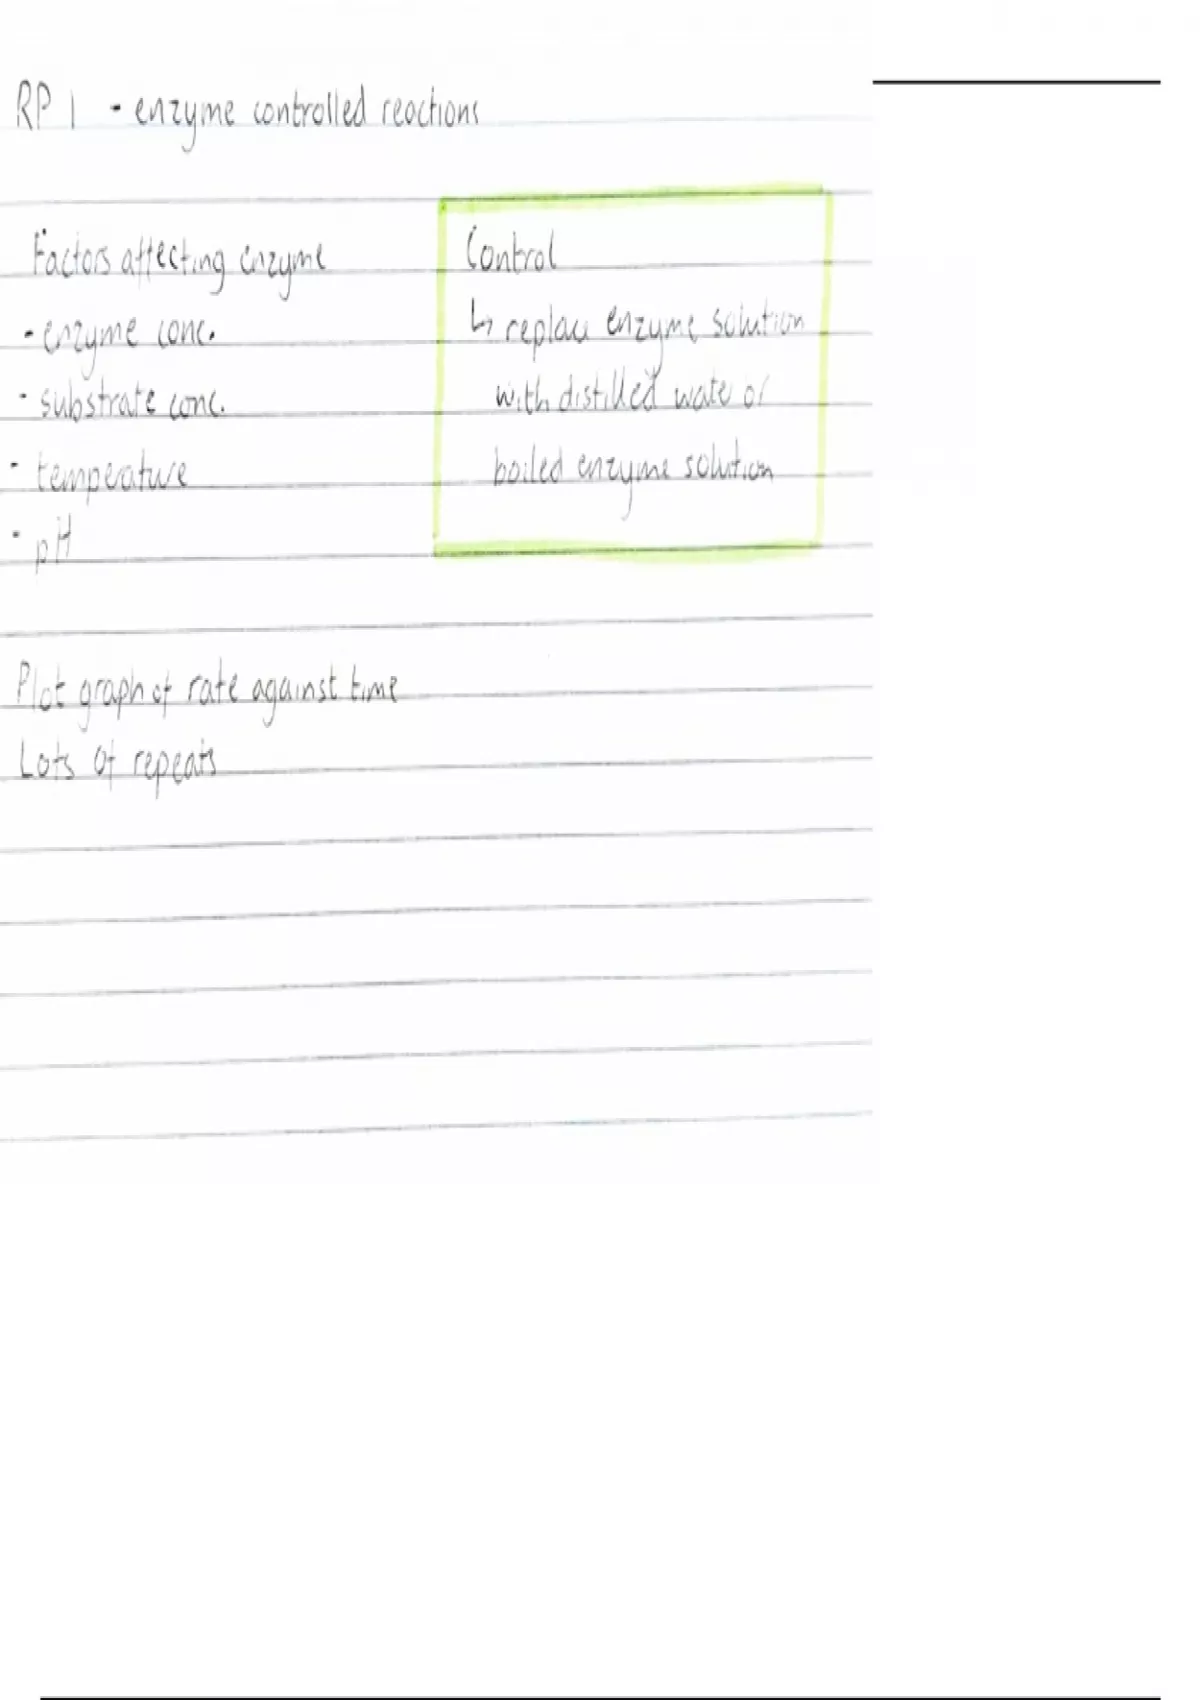 RP 1 - enzyme controlled reactions
Factors affecting enzyme
- enzyme conc.
- substrate conc.
- temperature
- pH
Control
↳ replace enzyme solution
with distilled water or
boiled enzyme solution
Plot graph of rate against time
Lots of repeats